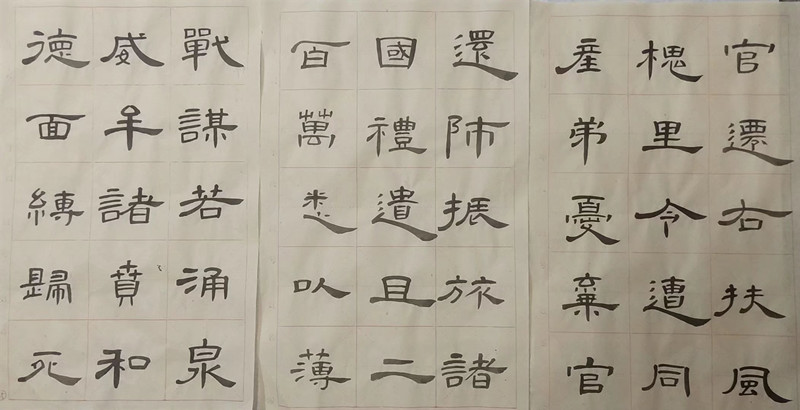 戰謀若涌泉
威牟諸賁和
德面縛歸死
還師振旅諸
國禮遺且二
百萬悉以薄
官遷右扶風
槐里令遭同
產弟憂棄官